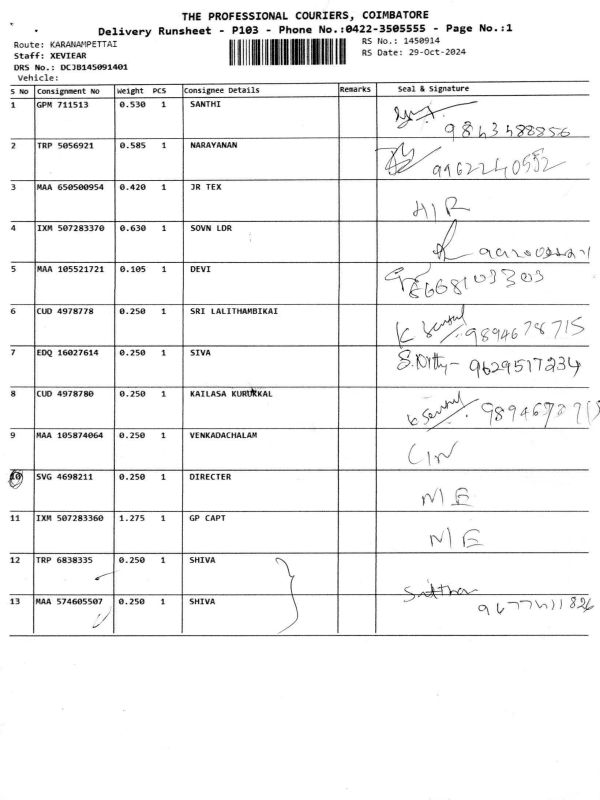 THE PROFESSIONAL COURIERS, COIMBATORE
Delivery Runsheet - P103 - Phone No.:0422-3505555 - Page No.:1
Route: KARANAMPETTAI
RS No.: 1450914
Staff: XEVIEAR
RS Date: 29-Oct-2024
DRS No.: DCJB145091401
Vehicle:
S No Consignment No Weight PCS Consignee Details Remarks Seal & Signature
1 GPM 711513 0.530 1 SANTHI
2 TRP 5056921 0.585 1 NARAYANAN 9962240552
3 MAA 650500954 0.420 1 JR TEX
4 IXM 507283370 0.630 1 SOVN LDR
5 MAA 105521721 0.105 1 DEVI
6 CUD 4978778 0.250 1 SRI LALITHAMBIKAI K Senthil 9894678715
7 EDQ 16027614 0.250 1 SIVA 9629517234
8 CUD 4978780 0.250 1 KAILASA KURUKKAL K Senthil
9 MAA 105874064 0.250 1 VENKADACHALAM
10 SVG 4698211 0.250 1 DIRECTER ME
11 IXM 507283360 1.275 1 GP CAPT ME
12 TRP 6838335 0.250 1 SHIVA
13 MAA 574605507 0.250 1 SHIVA